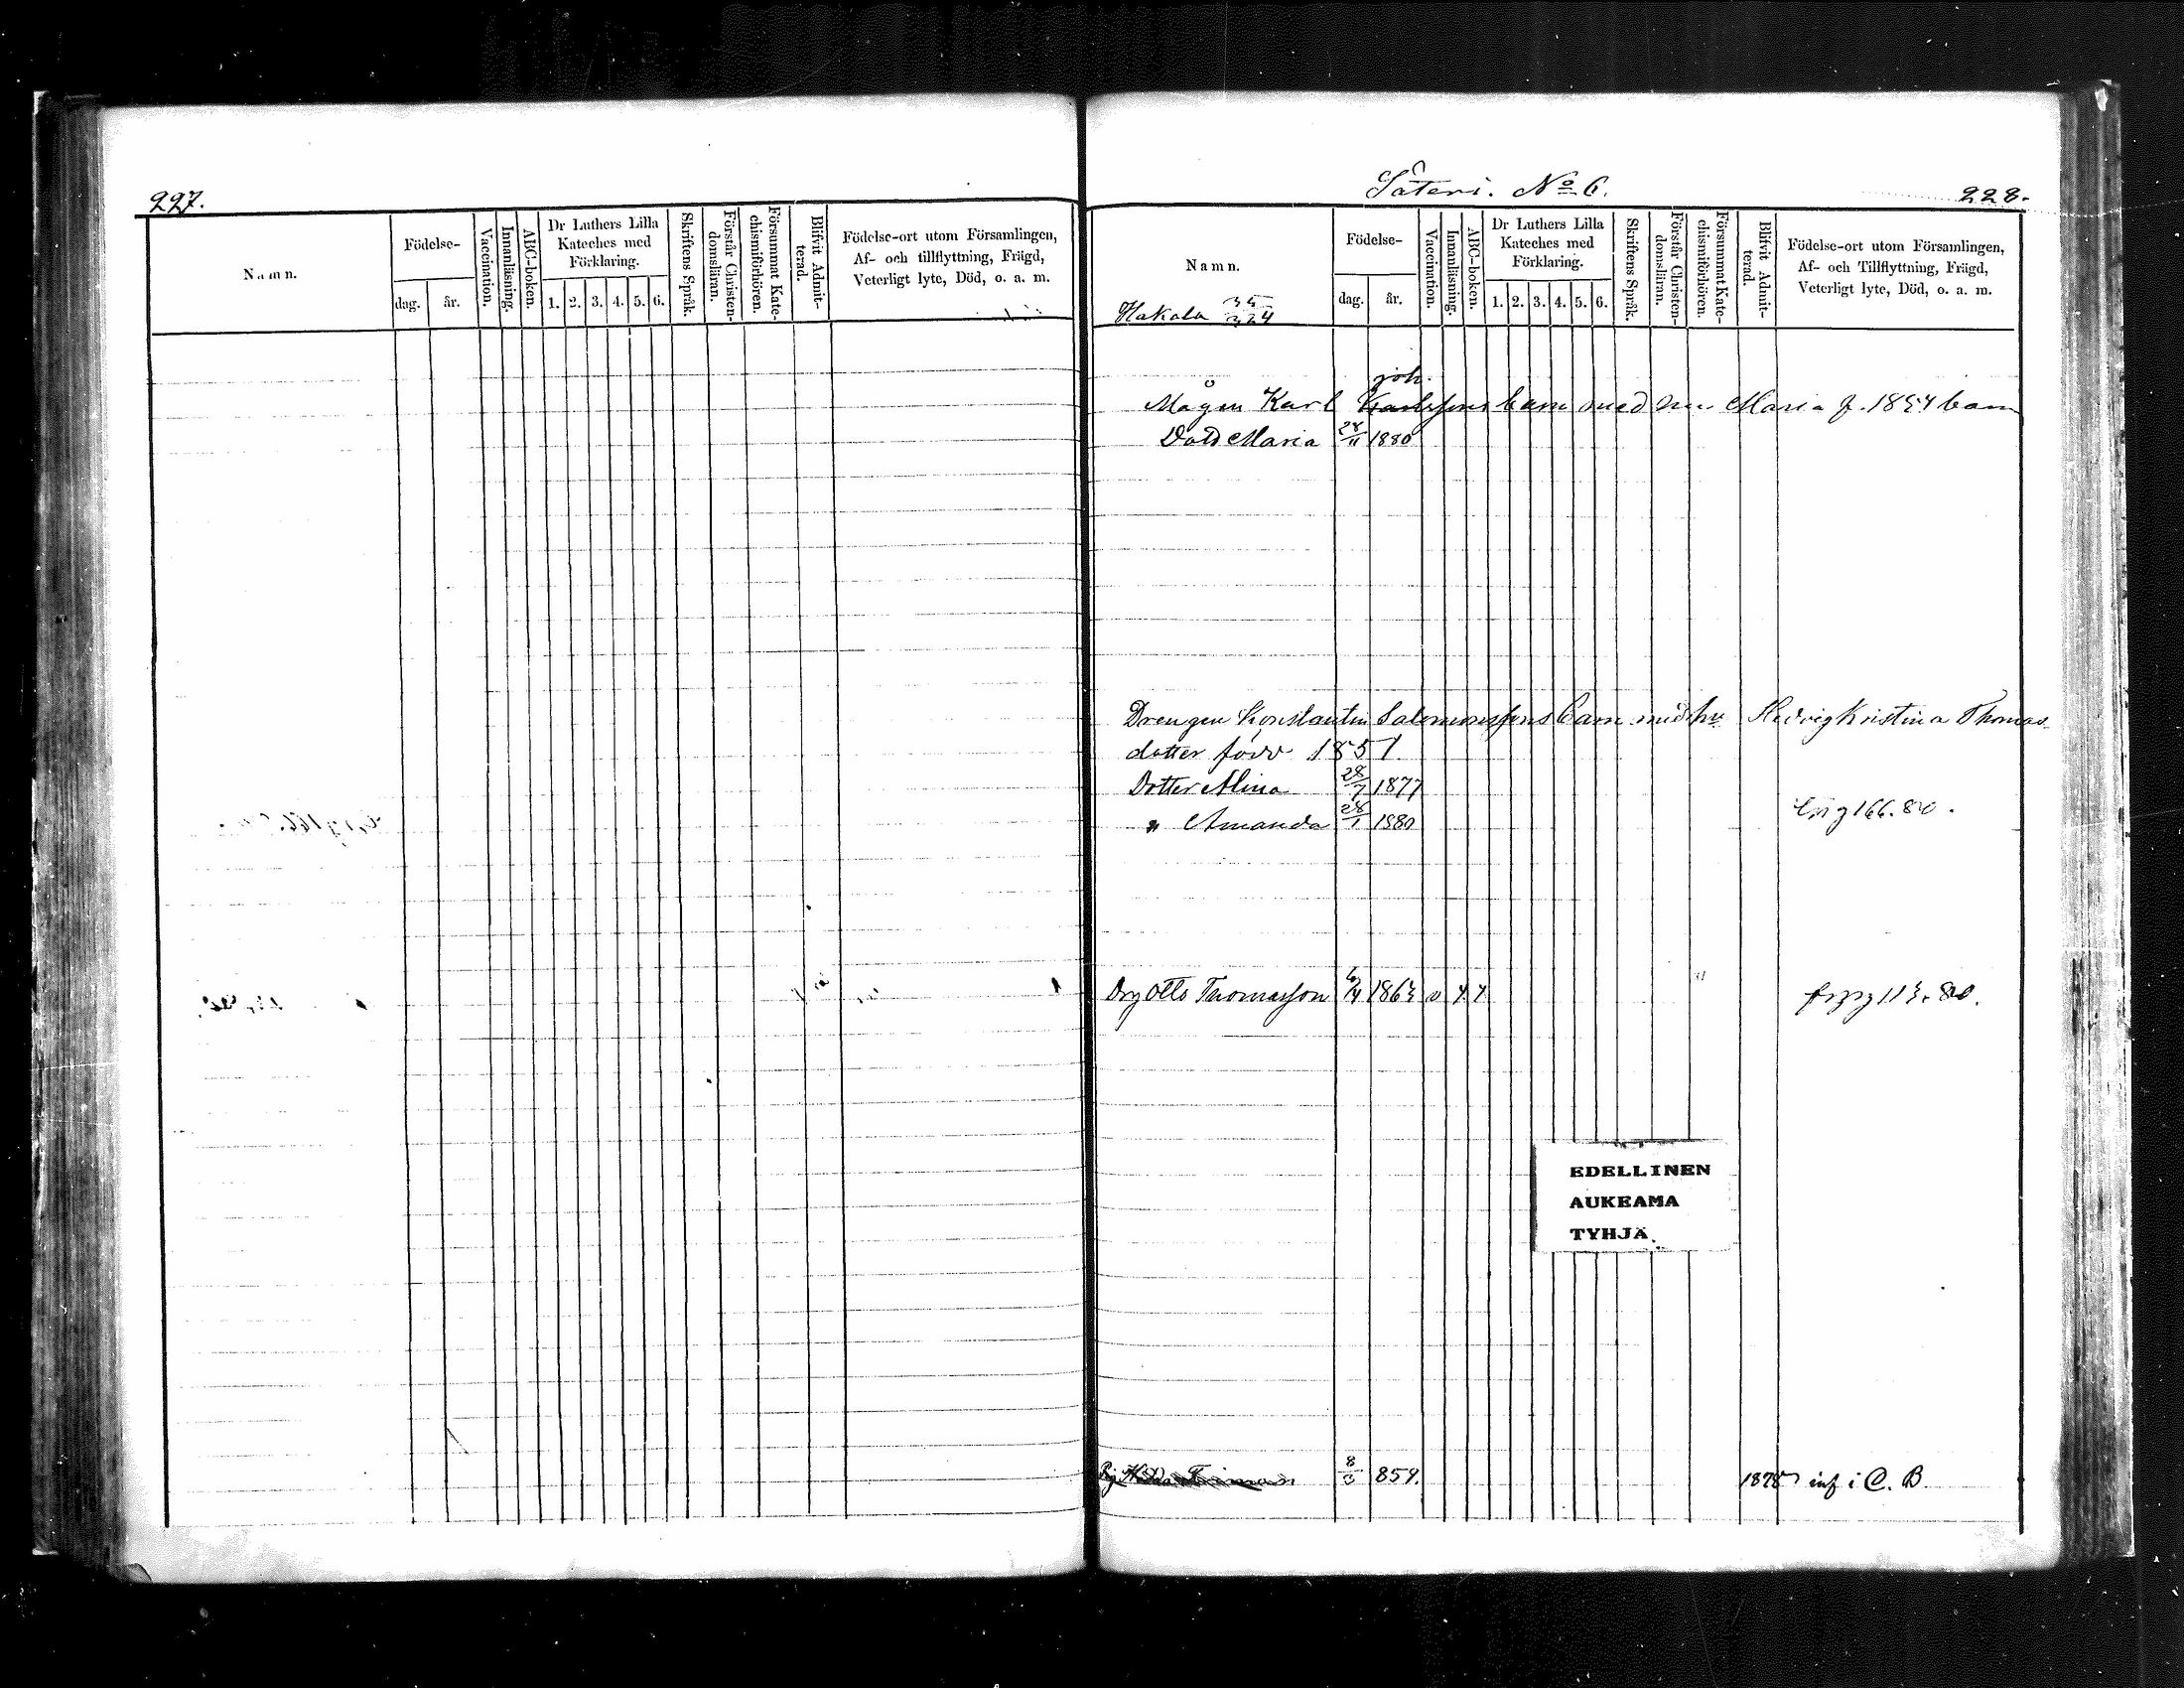 227.
Namn.
Födelse-
dag.
år.
Vaccination.
Innanläsning.
ABC-boken.
Dr Luthers Lilla
Kateches med
Förklaring.
1. 2. 3. 4. 5. 6.
Skriftens Språk.
Förstår Christen-
domsläran.
Försummat Kate-
chismiförhören.
Blifvit Admit-
terad.
Födelse-ort utom Församlingen,
Af- och tillflyttning, Frägd,
Veterligt lyte, Död, o. a. m.
Säteri. No 6.
228.
Namn.
Hakala
Födelse-
dag.
år.
Vaccination.
Innanläsning.
ABC-boken.
Dr Luthers Lilla
Kateches med
Förklaring.
1. 2. 3. 4. 5. 6.
Skriftens Språk.
Förstår Christen-
domsläran.
Försummat Kate-
chismiförhören.
Blifvit Admit-
terad.
Födelse-ort utom Församlingen,
Af- och Tillflyttning, Frägd,
Veterligt lyte, Död, o. a. m.
joh.
Mågen Karl Karlssons barn med Maria f. 1854 barn
Maria 28/11 1880
Drengen Konstantin Salomonssons barn med hu Hedvig Kristina Thomas-
dotter född 1851.
Dotter Alina 28/7 1877
" Amanda 28/1 1880 166.80.
Drg Otto Thomasson 6/4 1863 v 113.80.
EDELLINEN
AUKEAMA
TYHJÄ.
8/3 859. 1878 inf i C. B.